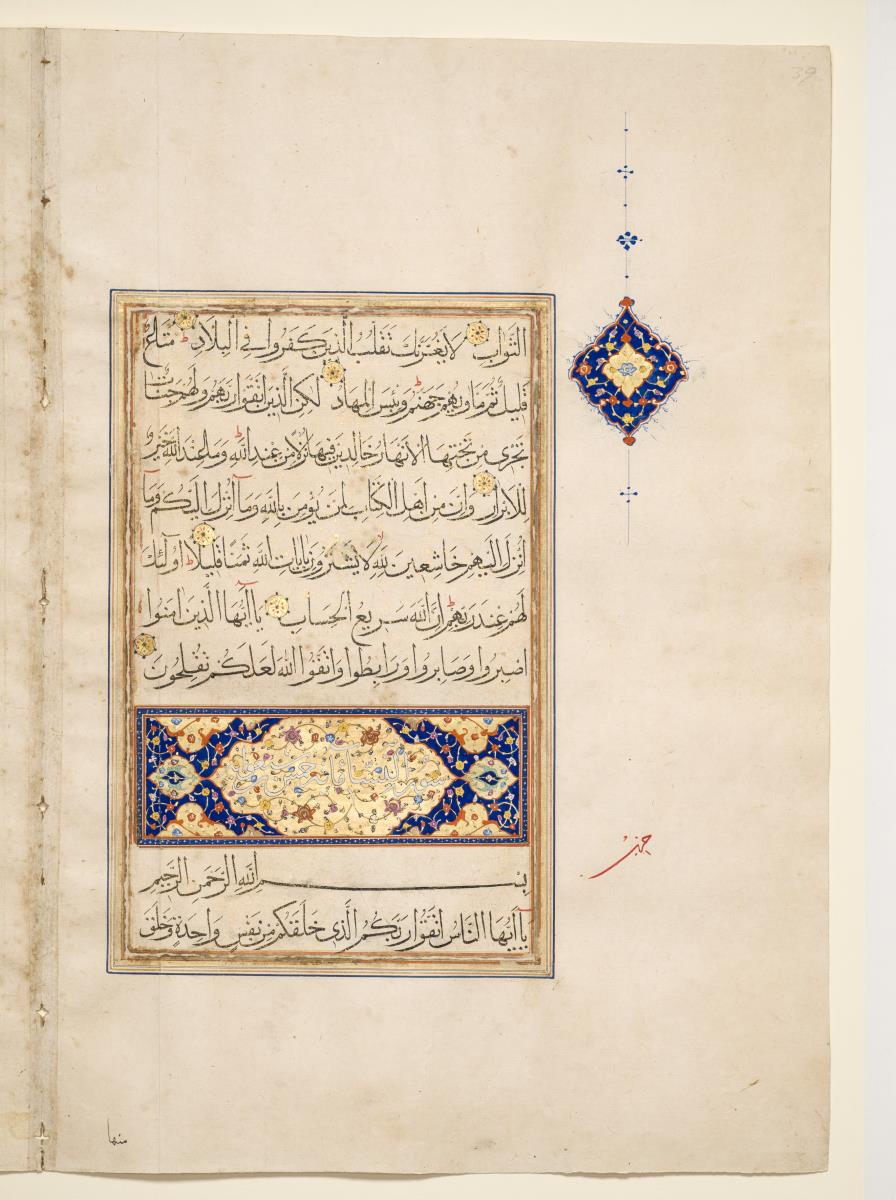 39
الثَّوَابِ لَا يَغُرَّنَّكَ تَقَلُّبُ الَّذِينَ كَفَرُوا فِي الْبِلَادِ مَتَاعٌ
قَلِيلٌ ثُمَّ مَأْوَىهُمْ جَهَنَّمُ وَبِئْسَ الْمِهَادُ لَكِنِ الَّذِينَ اتَّقَوْا رَبَّهُمْ لَهُمْ جَنَّاتٌ
تَجْرِي مِنْ تَحْتِهَا الْأَنْهَارُ خَالِدِينَ فِيهَا نُزُلًا مِنْ عِنْدِ اللَّهِ وَمَا عِنْدَ اللَّهِ خَيْرٌ
لِلْأَبْرَارِ وَإِنَّ مِنْ أَهْلِ الْكِتَابِ لَمَنْ يُؤْمِنُ بِاللَّهِ وَمَا أُنْزِلَ إِلَيْكُمْ وَمَا
أُنْزِلَ إِلَيْهِمْ خَاشِعِينَ لِلَّهِ لَا يَشْتَرُونَ بِآيَاتِ اللَّهِ ثَمَنًا قَلِيلًا أُولَئِكَ
لَهُمْ عِنْدَ رَبِّهِمْ إِنَّ اللَّهَ سَرِيعُ الْحِسَابِ يَا أَيُّهَا الَّذِينَ آمَنُوا
اصْبِرُوا وَصَابِرُوا وَرَابِطُوا وَاتَّقُوا اللَّهَ لَعَلَّكُمْ تُفْلِحُونَ
سورة النساء مائة
بِسْمِ اللَّهِ الرَّحْمَنِ الرَّحِيمِ
يَا أَيُّهَا النَّاسُ اتَّقُوا رَبَّكُمُ الَّذِي خَلَقَكُمْ مِنْ نَفْسٍ وَاحِدَةٍ وَخَلَقَ
حزب
منها